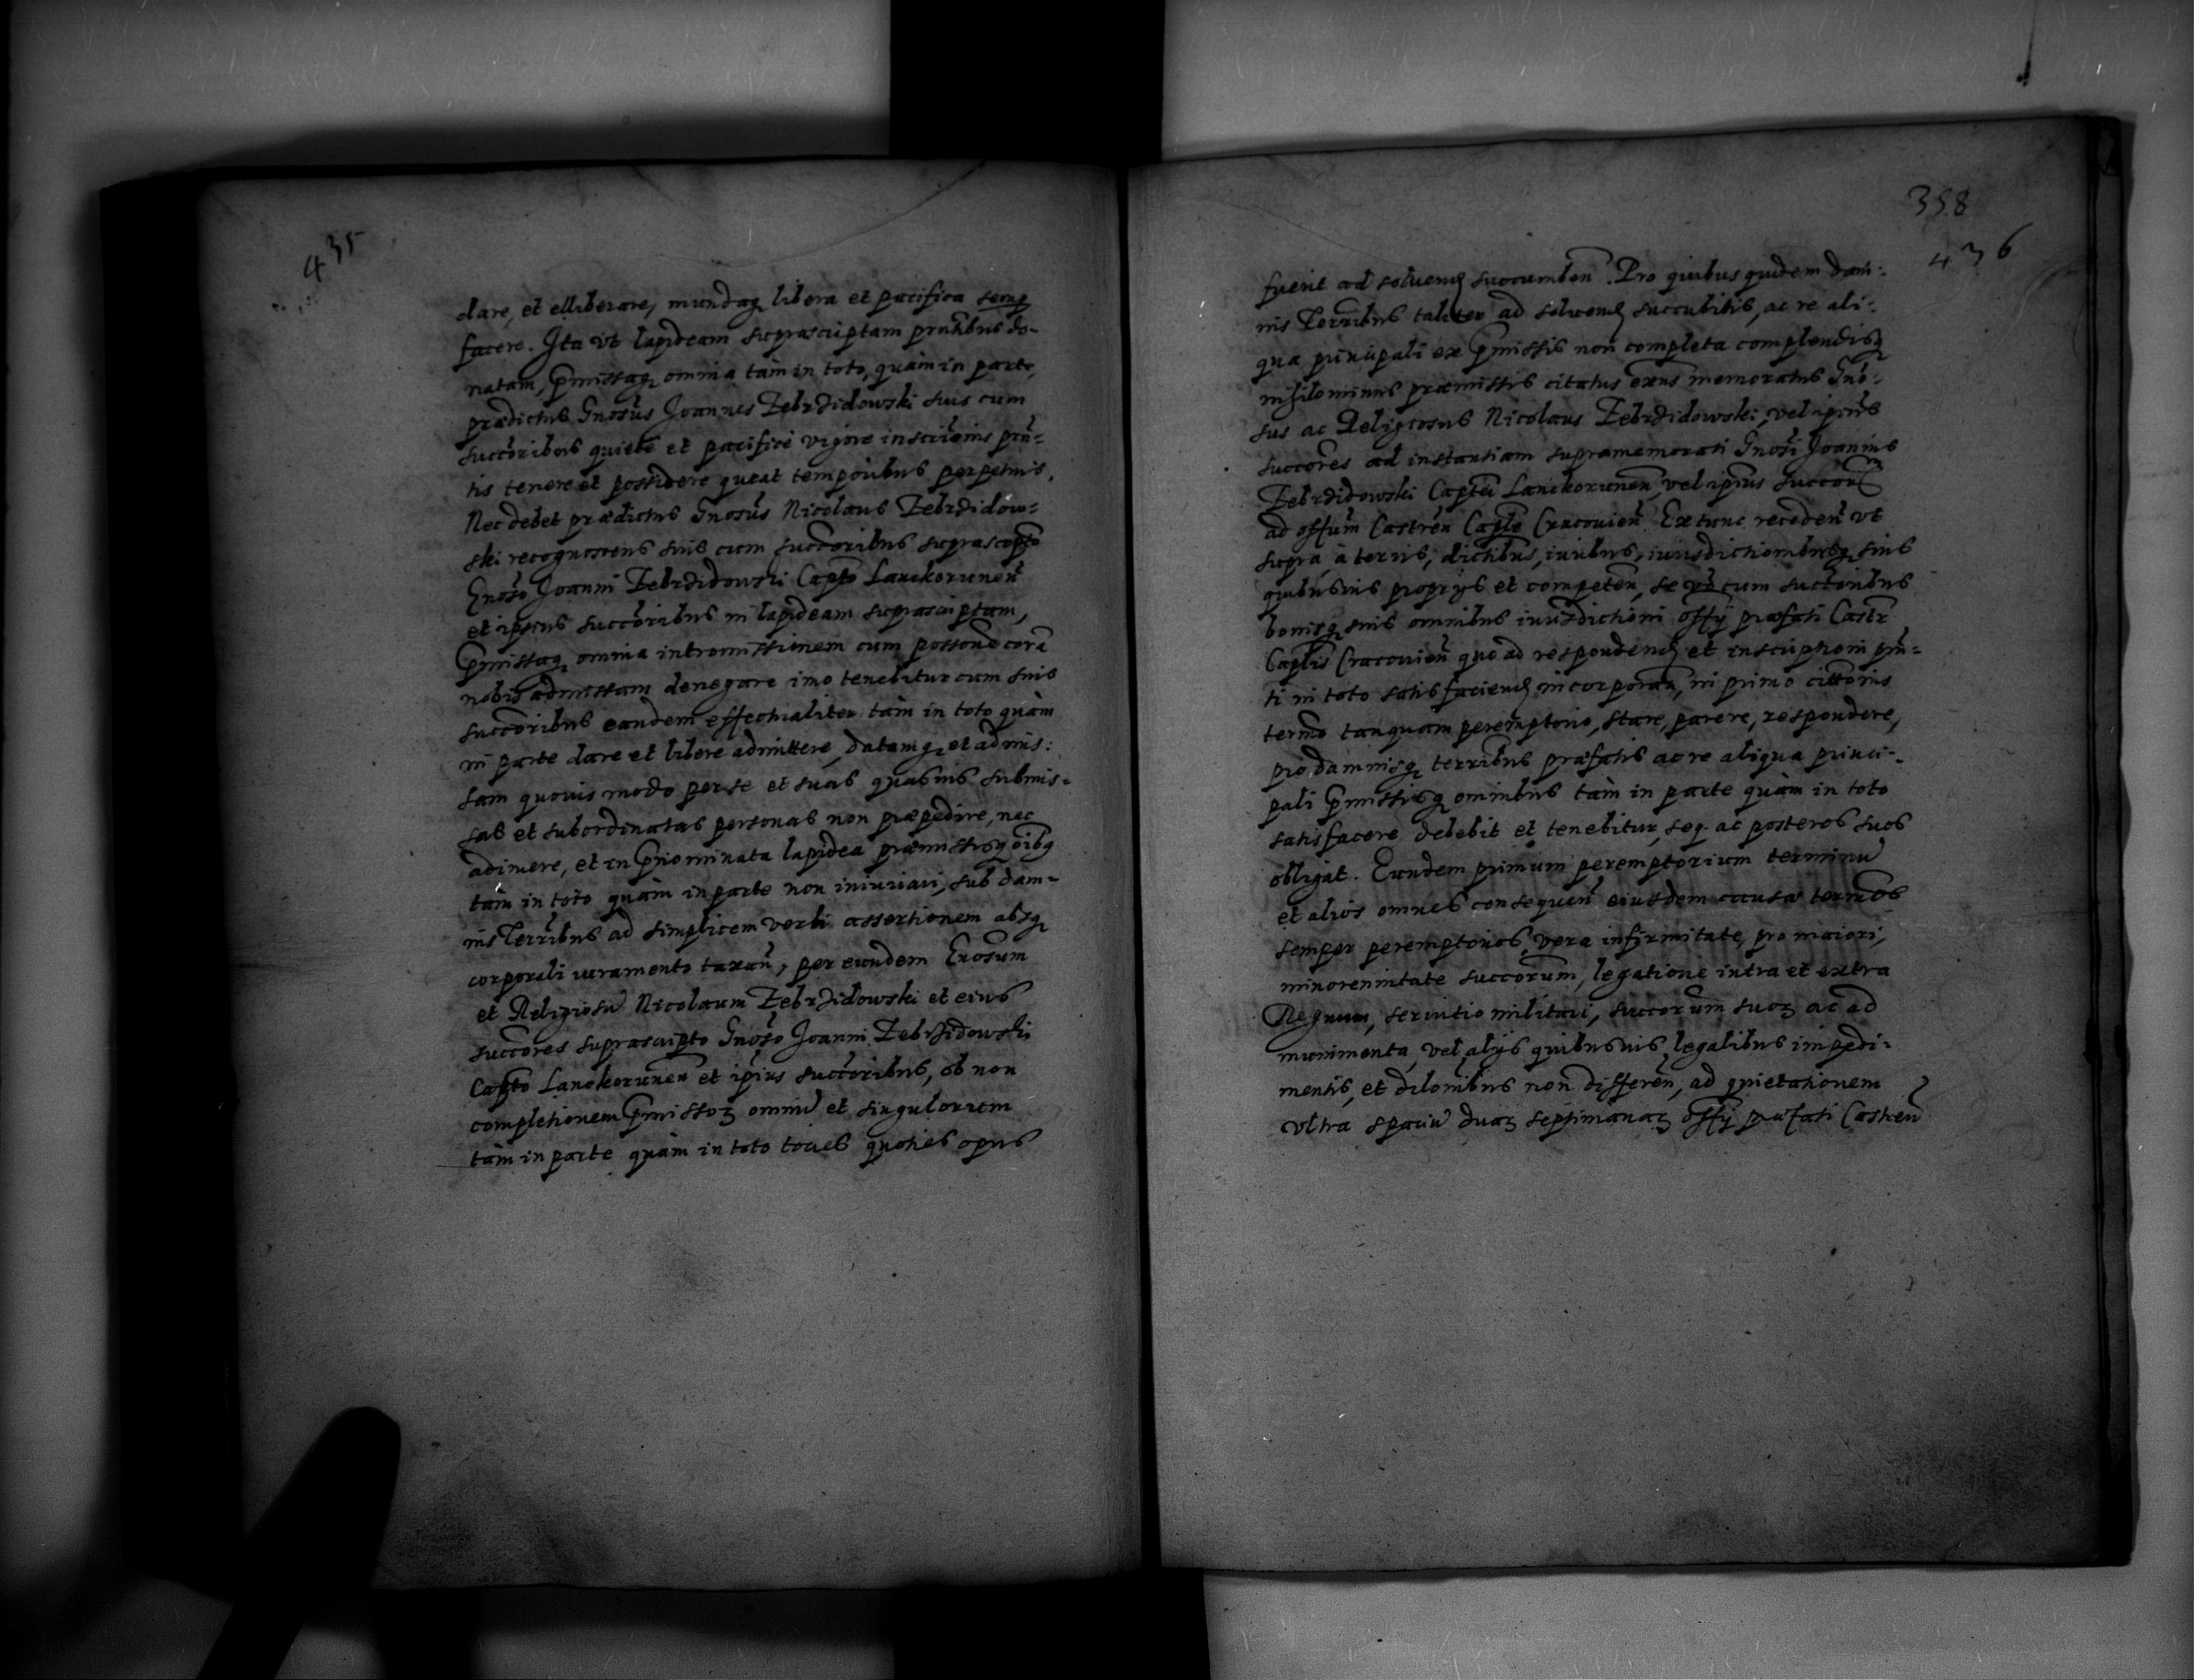 435
dare, et elliberare, mundaq libera et pacifica semp
facere. Ita vt lapideam suprascriptam pntibus do-
natam, pmissaq omnia tàm in toto, quàm in parte,
prædictus Gnosus Joannes Zebrzidowski suis cum
succoribus quietè et pacificè vigore inscriõnis pñ-
tis tenere et possidere queat temporibus perpetuis.
Nec debet prædictus Gnosus Nicolaus Zebrzidow-
ski recognoscens suis cum succoribus suprascpto
Gnoso Joanni Zebrzidowski Capto Lanckorunen
et ipsius succoribus in lapideam suprascriptam,
pmissaq omnia intromissionem cum possone corã
nobis admissam denegare imo tenebitur cum suis
succoribus eandem effectualiter tàm in toto quàm
in parte dare et libere admittere, datamq et admis:
sam quouis modo per se et suas quasuis submis-
sas et subordinatas personas non præpedire, nec
adimere, et in pnominata lapidea præmissisq oibq
tàm in toto quàm in parte non iniuriari, sub dam-
nis Terribus ad simplicem verbi assertionem absq
corporali iuramento taxan, per eundem Gnosum
et Religiosũ Nicolaum Zebrzidowski et eius
succores suprascripto Gnoso Joanni Zebrzidowski
Capto Lanckorunen et ipius succoribus, ob non
completionem pmissoꝝ omniũ et singulorum
tàm in parte quàm in toto toties quoties opus
358
436
fuerit ad soluend succumben. Pro quibus quidem dam-
nis Terribus taliter ad soluend succubitis, ac re ali-
qua principali ex pmissis non completa complendisq
nihilominus præmissis citatus exns memoratus Gno-
sus ac Religiosus Nicolaus Zebrzidowski, vel ipius
succores ad instantiam supramemorati Gnosi Joannis
Zebrzidowski Captei Lanckorunen, vel ipius succorũ
ad offum Castren Caple Cracouien. Extunc receden vt
supra à terris, dictibus, iuribus, iurisdictionibusq suis
quibusuis proprijs et competen, se vñ cum succoribus
bonisq suis omnibus iurisdictioni offij præfati Castr
Caplis Cracouien quo ad respondend et inscriptioni pñ-
ti in toto satisfaciend incorporan, in primo cittonis
termo tanquam peremptorio, stare, parere, respondere,
pro damnisq terribus præfatis ac re aliqua princi-
pali pmissisq omnibus tàm in parte quàm in toto
satisfacere debebit et tenebitur, seq. ac posteros suos
obligat. Eundem primum peremptorium terminũ
et alios omnes consequen eiusdem causæ termos
semper peremptorios, vera infirmitate, pro maiori,
minorennitate succorum, legatione intra et extra
Regnum, seruitio militari, succorum suoꝝ ac ad
munimenta, vel alijs quibusuis legalibus impedi-
mentis, et dilonibus non differen, ad quietationem
vltra spaciũ duaꝝ septimanaꝝ offij præfati Castren